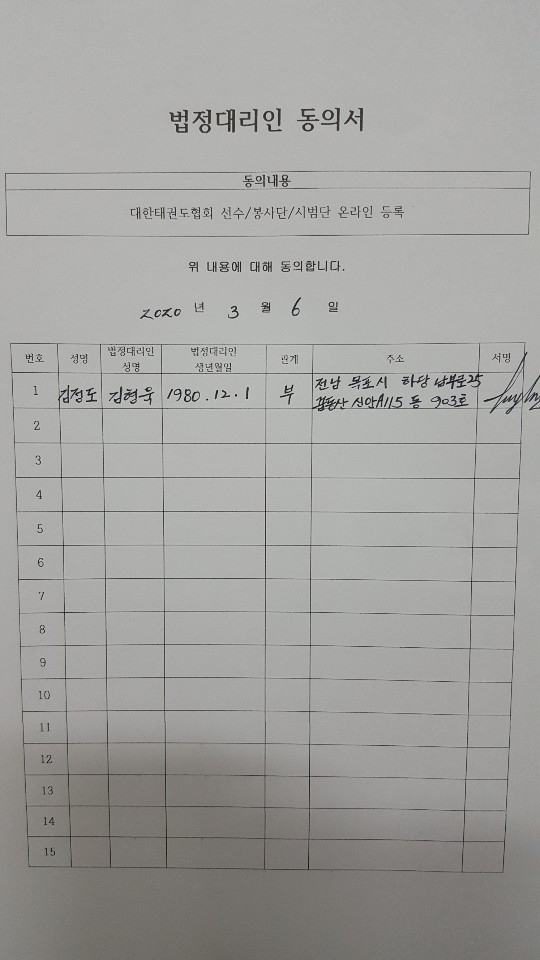 법정대리인 동의서
동의내용
대한태권도협회 선수/봉사단/시범단 온라인 등록
위 내용에 대해 동의합니다.
2020 년 3 월 6 일
번호 성명 법정대리인 성명 법정대리인 생년월일 관계 주소 서명
1 김정도 김형욱 1980.12.1 부 전남 목포시 하당남부로25
신안A 115동 903호
2
3
4
5
6
7
8
9
10
11
12
13
14
15